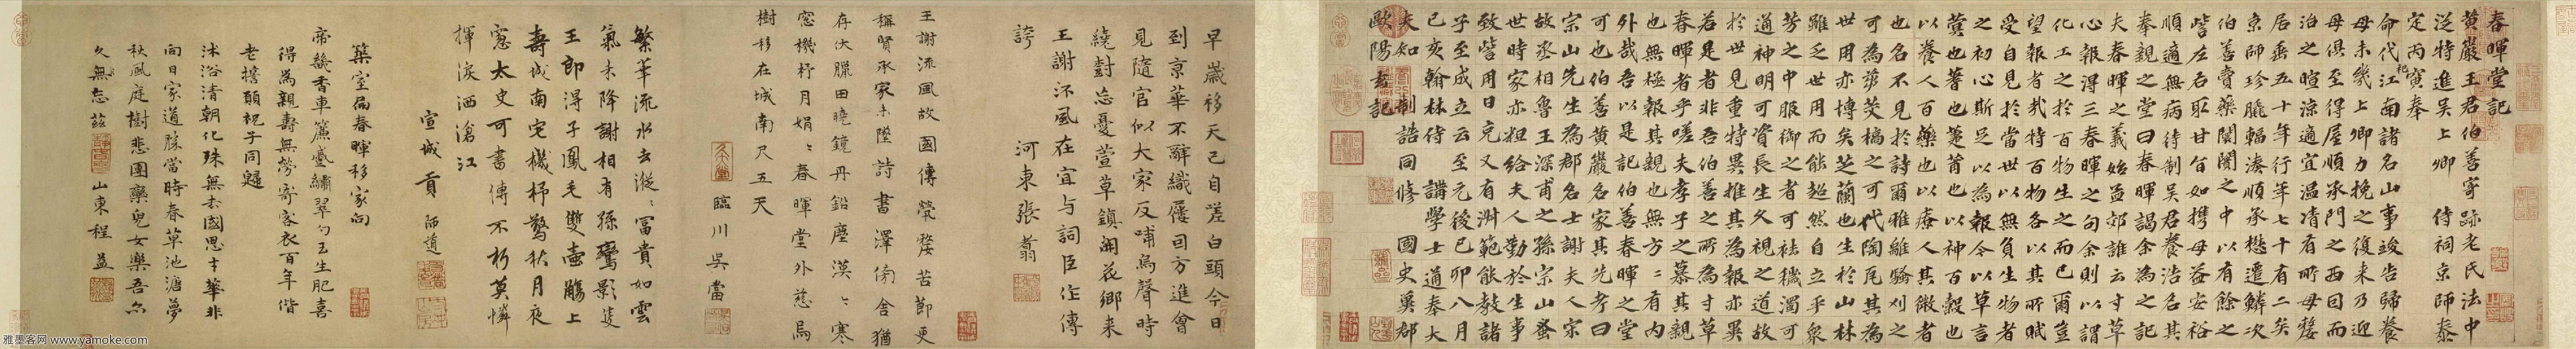 春暉堂記
黄巖王君伯善寄跡老氏法中
泛特進吴上卿 侍祠京師泰
定丙寅奉
命代祀江南諸名山事竣告歸養
母未幾上卿力挽之復来乃迎
母俱至得屋順承門之西回而
治之暄涼適宜温凊有所母嫠
居垂五十年行年七十有二矣
京師珍臘輻湊順承懋遷鱗次
伯善賣藥闤闠之中以有餘之
訾左右取甘旨如携母益安裕
順適無病待制吴君養浩名其
奉親之堂曰春暉謁余為之記
夫春暉之義始孟郊誰云寸草
心報得三春暉之句余則以謂
化工之於百物生之而已爾豈
望報者哉特百物各以其所賦
受自見於當世以無負生物者
之初心斯足以為報今以草言
蓂也蓍也萐莆也以神百穀也
以養人百藥也以療人其微者
也名不見於詩爾雅離騷刈之
可為茭藁之可代陶瓦其為
世用亦博矣芝蘭也生於山林
雖乏世用而能超然自立乎衆
芳之中服御之者可祛穢濁可
通神明可資長生久視之道故
於世見重特異推其為報亦異
若是者非吾伯善之所為寸草
春暉者乎嗟夫孝子之慕其親
也無極報其親也無方方有内
外哉吾以是記伯善春暉之堂
可也伯善黄巖名家其先考曰
宗山先生為郡名士謝夫人宗
故丞相魯王深甫之孫宗山蚤
世時家亦粗給夫人勤於生事
致訾用日充又有淵範能教諸
子至成立云至元後己卯八月
己亥翰林侍 講學士通奉大
夫知 制誥同修 國史冀郡
歐陽玄記
早歲移天已自嗟白頭今日
到京華不辭織屨回方進會
見隨官似大家反哺烏聲時
繞對忘憂萱草鎮開花鄉来
王謝怀風在宜与詞臣作傳
誇 河東張翥
王謝流風故國傳煢嫠苦節更
稱賢承家未墜詩書澤傍舍猶
存伏臘田曉鏡丹鉛塵漠漠寒
窓機杼月娟娟春暉堂外慈烏
樹移在城南尺五天
臨川吴當
繁華流水去漎漎富貴如雲
氣未降謝相有孫鸞影隻
王郎得子鳳毛雙壺觴上
壽城南宅機杼驚秋月夜
窓太史可書傳不朽莫憐
揮淚洒滄江
宣城貢師道
築室扁春暉移家向
帝畿香車簾臺繡翠勺玉生肥喜
得為親壽無勞寄客衣百年偕
老擔願祝子同歸
沭浴清朝化殊無去國思寸華非
向日家道勝當時春草池溏夢
秋風庭樹悲團欒兒女樂吾尔
久無忘兹 山東程益
雅墨客网 www.yamoke.com